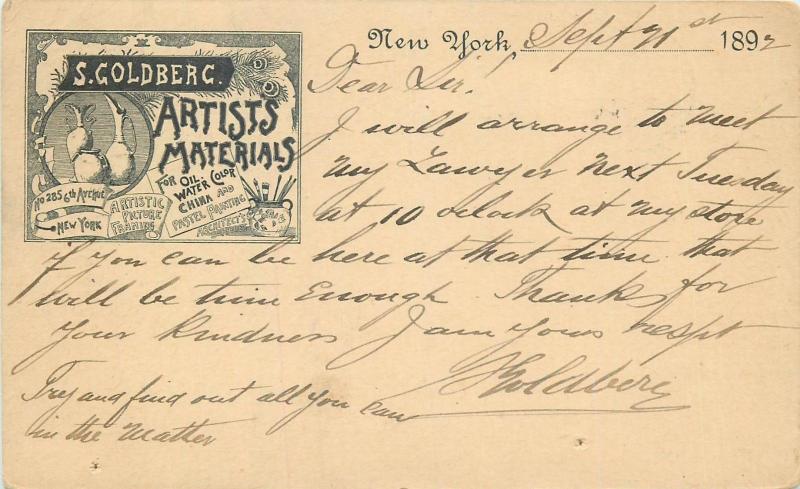 S. GOLDBERG.
ARTISTS
MATERIALS
FOR OIL,
WATER COLOR
CHINA AND
PASTEL PAINTING
ARCHITECT'S
No 285 6th AVENUE
NEW YORK
ARTISTIC
PICTURE
FRAMING
New York, Sept 21st 1892
Dear Sir!
I will arrange to meet
my Lawyer next Tuesday
at 10 oclock at my store
if you can be here at that time that
will be time Enough Thanks for
Your Kindness I am yours respt
S Goldberg
Try and find out all you can
in the matter